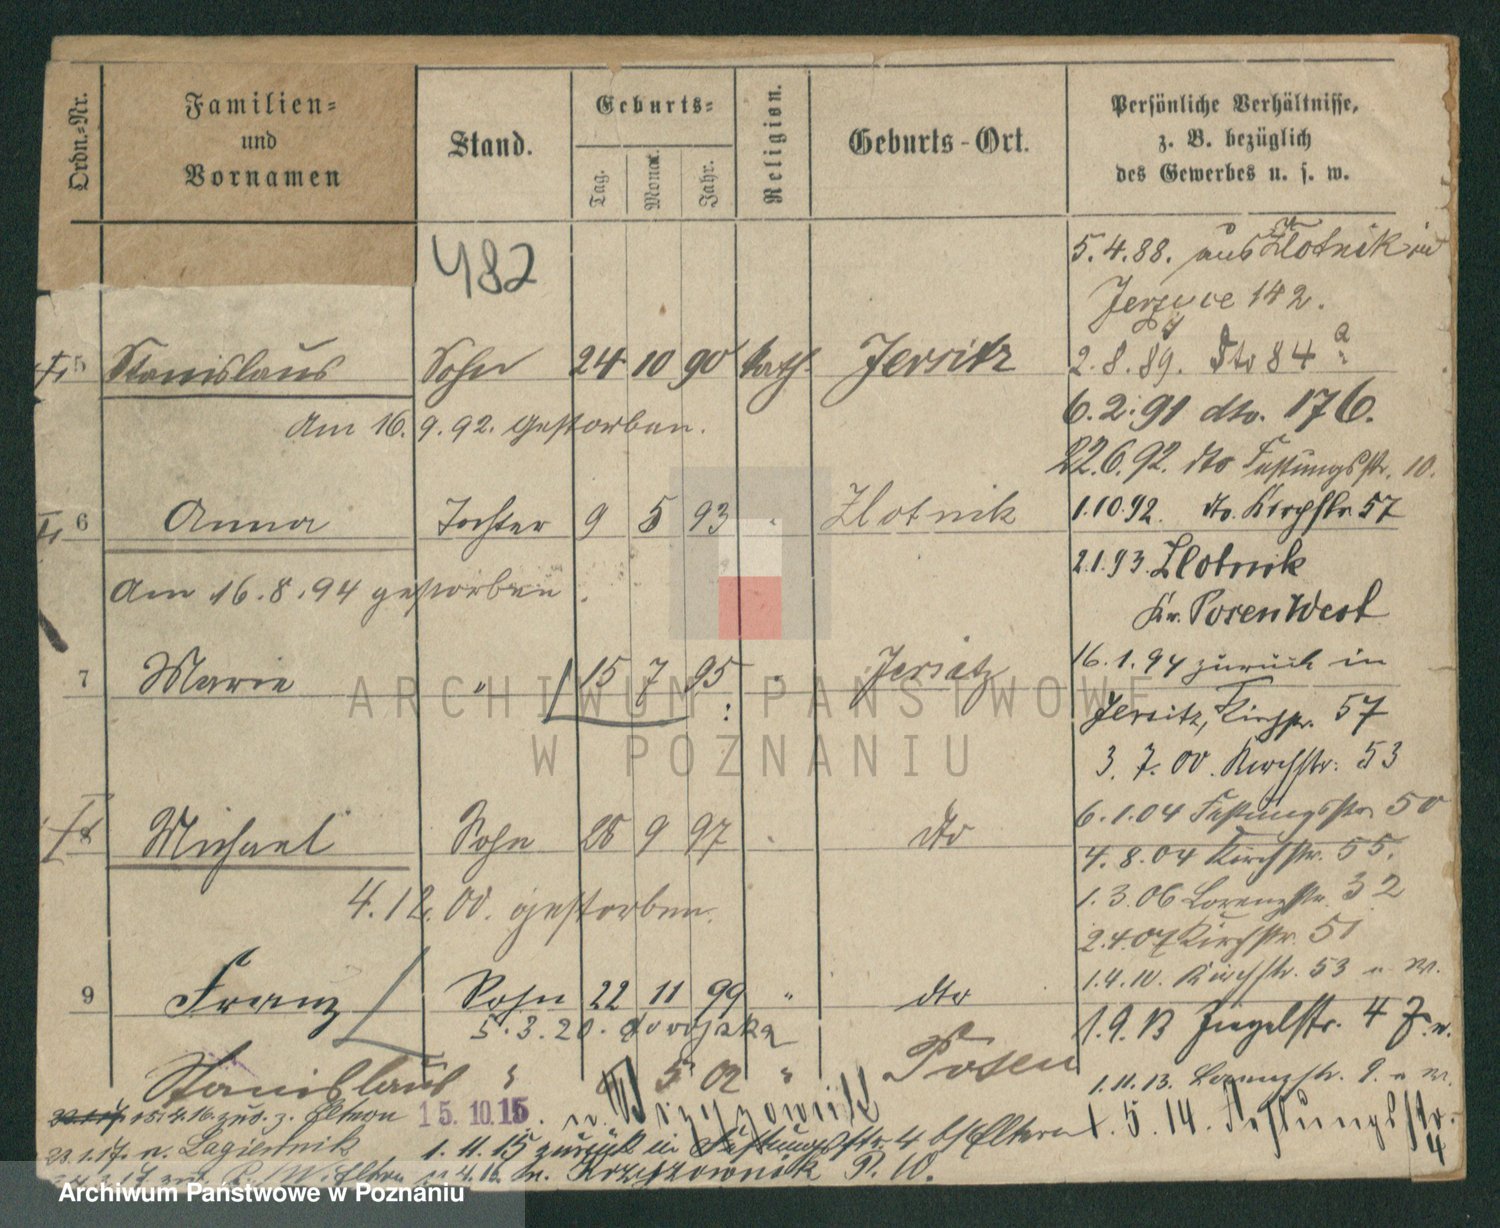 Ordn.-Nr.
Familien-
und
Vornamen
Stand.
Geburts-
Tag. Monat. Jahr.
Religion.
Geburts-Ort.
Persönliche Verhältnisse,
z. B. bezüglich
des Gewerbes u. s. w.
482
5.4.88. aus Zlotnik in
Jerzyce 142.
5 Stanislaus Sohn 24 10 90 kath. Jersitz
2.8.89. dto 84 a
am 16.9.92. gestorben.
6.2.91 dto. 176.
22.6.92. dto Festungsstr. 10.
6 Anna Tochter 9 5 93 Zlotnik
1.10.92. dto. Kirchstr 57
am 16.8.94 gestorben.
2.1.93. Zlotnik
Kr. Posen West
16.1.94 zurück in
7 Marie " 15 7 95 " Jersitz
Jersitz, Kirchstr. 57
3.7.00. Kirchstr. 53
6.1.04 Festungsstr 50
8 Michael Sohn 28 9 97 " dto
4.8.04 Kirchstr. 55.
4.12.00. gestorben.
1.3.06 Lorenzstr. 32
2.4.07 Kirchstr. 51
1.4.10. Kirchstr. 53 u. W.
9 Franz Sohn 22 11 99 " dto
5.3.20.
1.9.13 Ziegelstr. 4
Stanislaus " 5 02 " Posen
1.11.13. Lorenzstr. 9. u. W.
15.4.16. zus. z. Eltern
15.10.15. n.
1.5.14. Festungsstr. 4
23.1.17. n. Lagiewnik
1.11.15 zurück in Festungsstr 4 b/Eltern
P. W.
ARCHIWUM PAŃSTWOWE
W POZNANIU
Archiwum Państwowe w Poznaniu